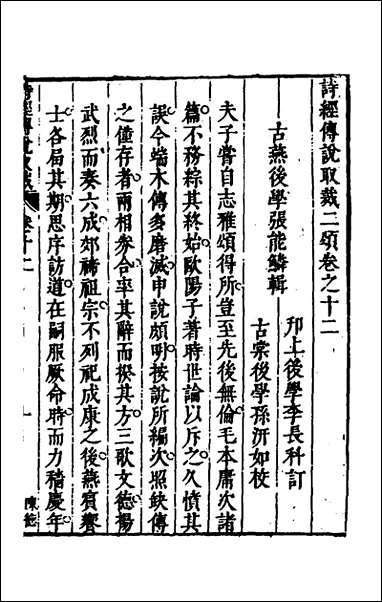 詩經傳說取裁二頌卷之十二
古燕後學張能鱗輯
邗上後學李長科訂
古宗後學孫沂如校
夫子嘗自志雅頌得所豈至先後無倫毛本庸次諸
篇不務綜其終始歐陽子著時世論以斥之久憤其
誤今端木傳多磨滅申說頗明按說所編次照缺傳
之僅存者兩相參合率其辭而揆其方三歌文德揚
武烈而奏六成郊禘祖宗不列祀成康之後燕賓饗
士各屆其期思序訪道在嗣服厥命時而力穡慶年